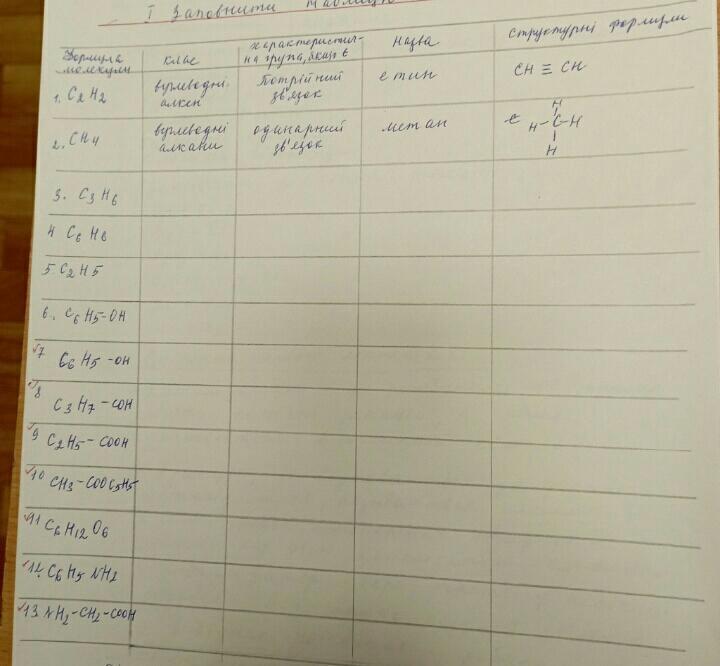 I Заповнити таблицю
Формула молекули клас характеристична група, якщо є Назва структурні формули
1. C2H2 вуглеводні алкен Потрійний зв'язок етин CH ≡ CH
2. CH4 вуглеводні алкани одинарний зв'язок метан
H
H - C - H
H
3. C3H6
4 C6H6
5. C2H5
6. C6H5-OH
7 C6H5-OH
8 C3H7-COH
9 C2H5-COOH
10 CH3-COOC5H5
11 C6H12O6
12. C6H5NH2
13. NH2-CH2-COOH